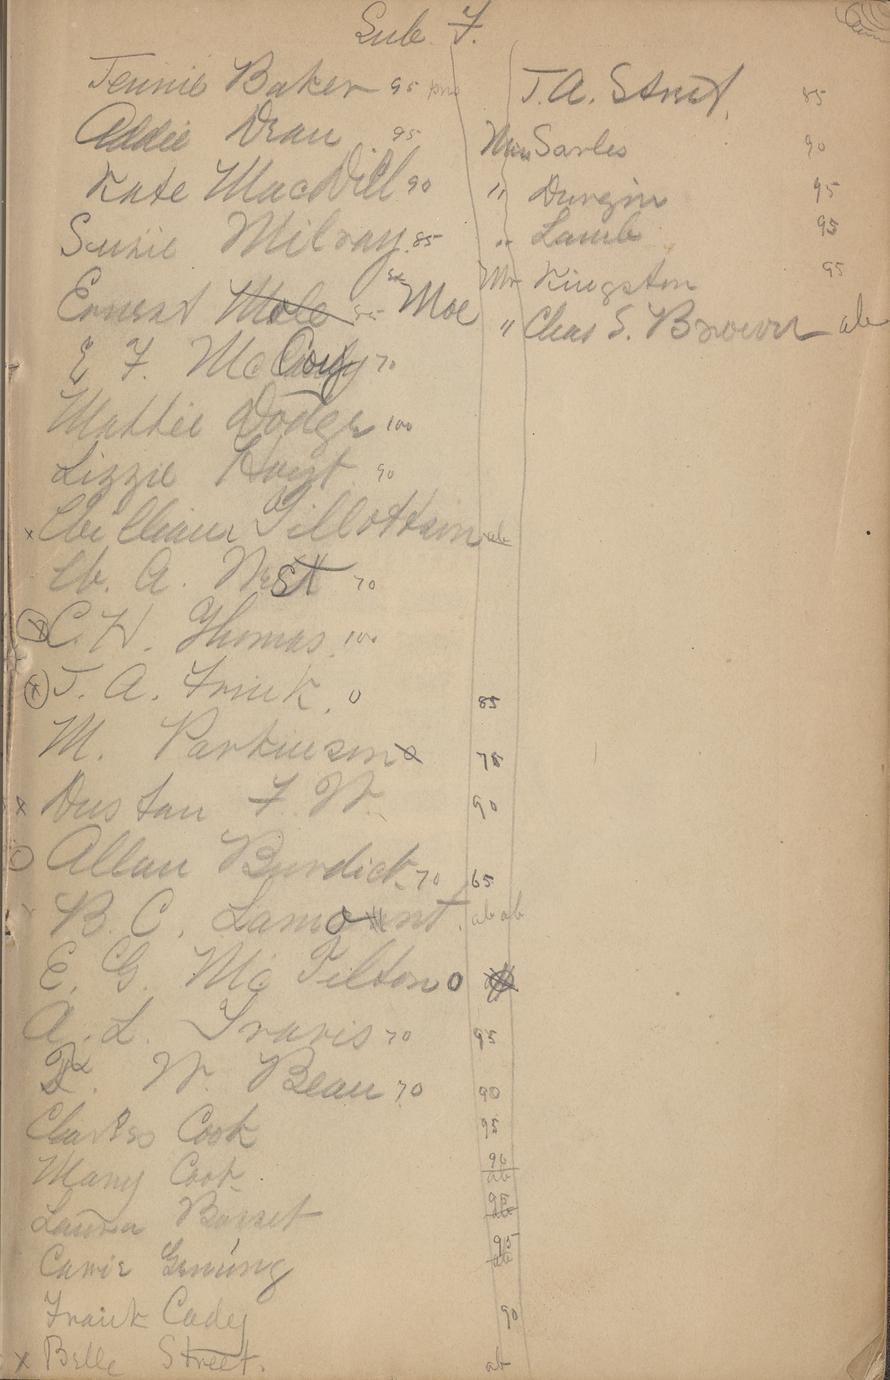 Sub F.
Jennie Baker 95
Addie Dean 95
Kate MacDill 90
Suzie Milray 85
Ernest Mole 85 Moe
E F. McCoy 70
Mattie Dodge 100
Lizzie Hoyt 90
x William Tillottson ab
W. A. West 70
x C. H. Thomas 100
x J. A. Frink. 0 85
M. Parkinson 75
x Dustan F. W. 90
O Allan Burdick 70 65
B. C. Lamont ab ab
E. G. Mc Felton 0
A. L. Travis 70 95
W. Bean 70 90
Charles Cook 95
Mary Cook 90 ab
Laura Basset 95 ab
Carrie Genung 95 ab
Frank Cady 90
x Belle Street. ab
J. A. Street, 85
Miss Sarles 90
" Durgin 95
" Lamb 95
Mr Kingston 95
" Chas S. Brown ab